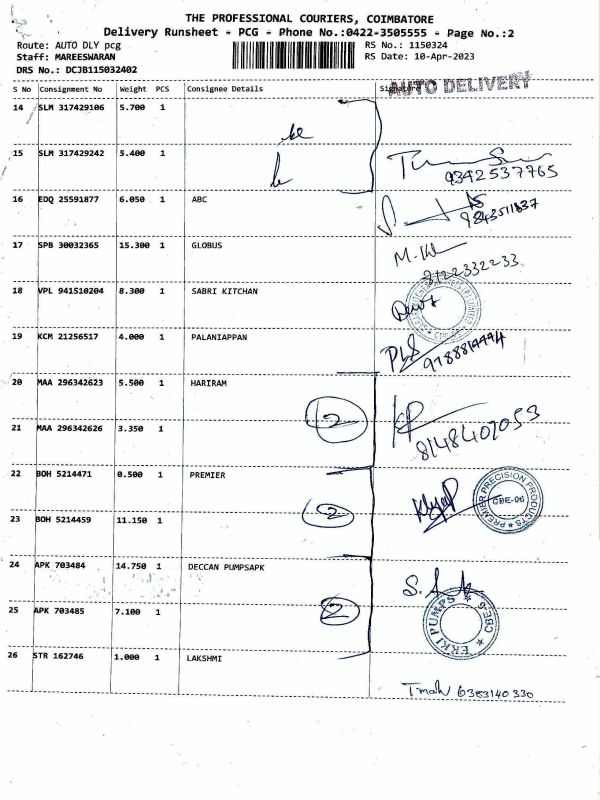 THE PROFESSIONAL COURIERS, COIMBATORE
Delivery Runsheet - PCG - Phone No.:0422-3505555 - Page No.:2
Route: AUTO DLY pcg RS No.: 1150324
Staff: MAREESWARAN RS Date: 10-Apr-2023
DRS No.: DCJB115032402
AUTO DELIVERY
S No Consignment No Weight PCS Consignee Details Signature
14 SLM 317429106 5.700 1
15 SLM 317429242 5.400 1
9342537765
16 EDQ 25591877 6.050 1 ABC
17 SPB 30032365 15.300 1 GLOBUS
8122332233
18 VPL 941510204 8.300 1 SABRI KITCHAN
19 KCM 21256517 4.000 1 PALANIAPPAN
20 MAA 296342623 5.500 1 HARIRAM
2
8148407053
21 MAA 296342626 3.350 1
22 BOH 5214471 0.500 1 PREMIER
PREMIER PRECISION PRODUCTS
CBE-06
2
23 BOH 5214459 11.150 1
24 APK 703484 14.750 1 DECCAN PUMPSAPK
2
EKKI PUMPS CBE-6
25 APK 703485 7.100 1
26 STR 162746 1.000 1 LAKSHMI
6383140330